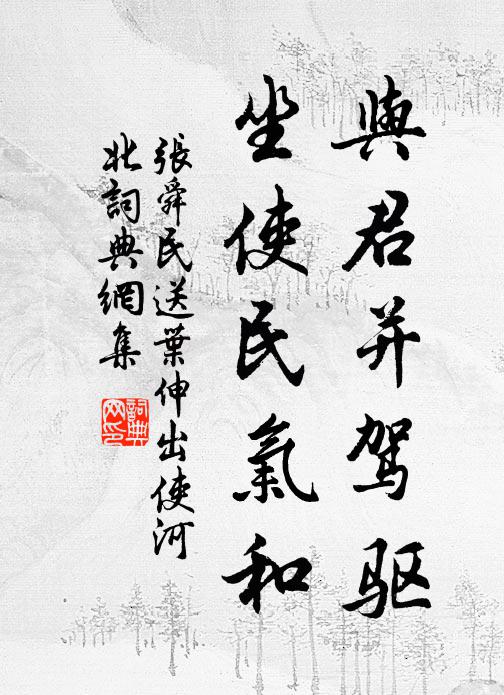 與君并駕驱
坐使民氣和
張舜民送葉伸出使河
北詞典網集
詞典
网印